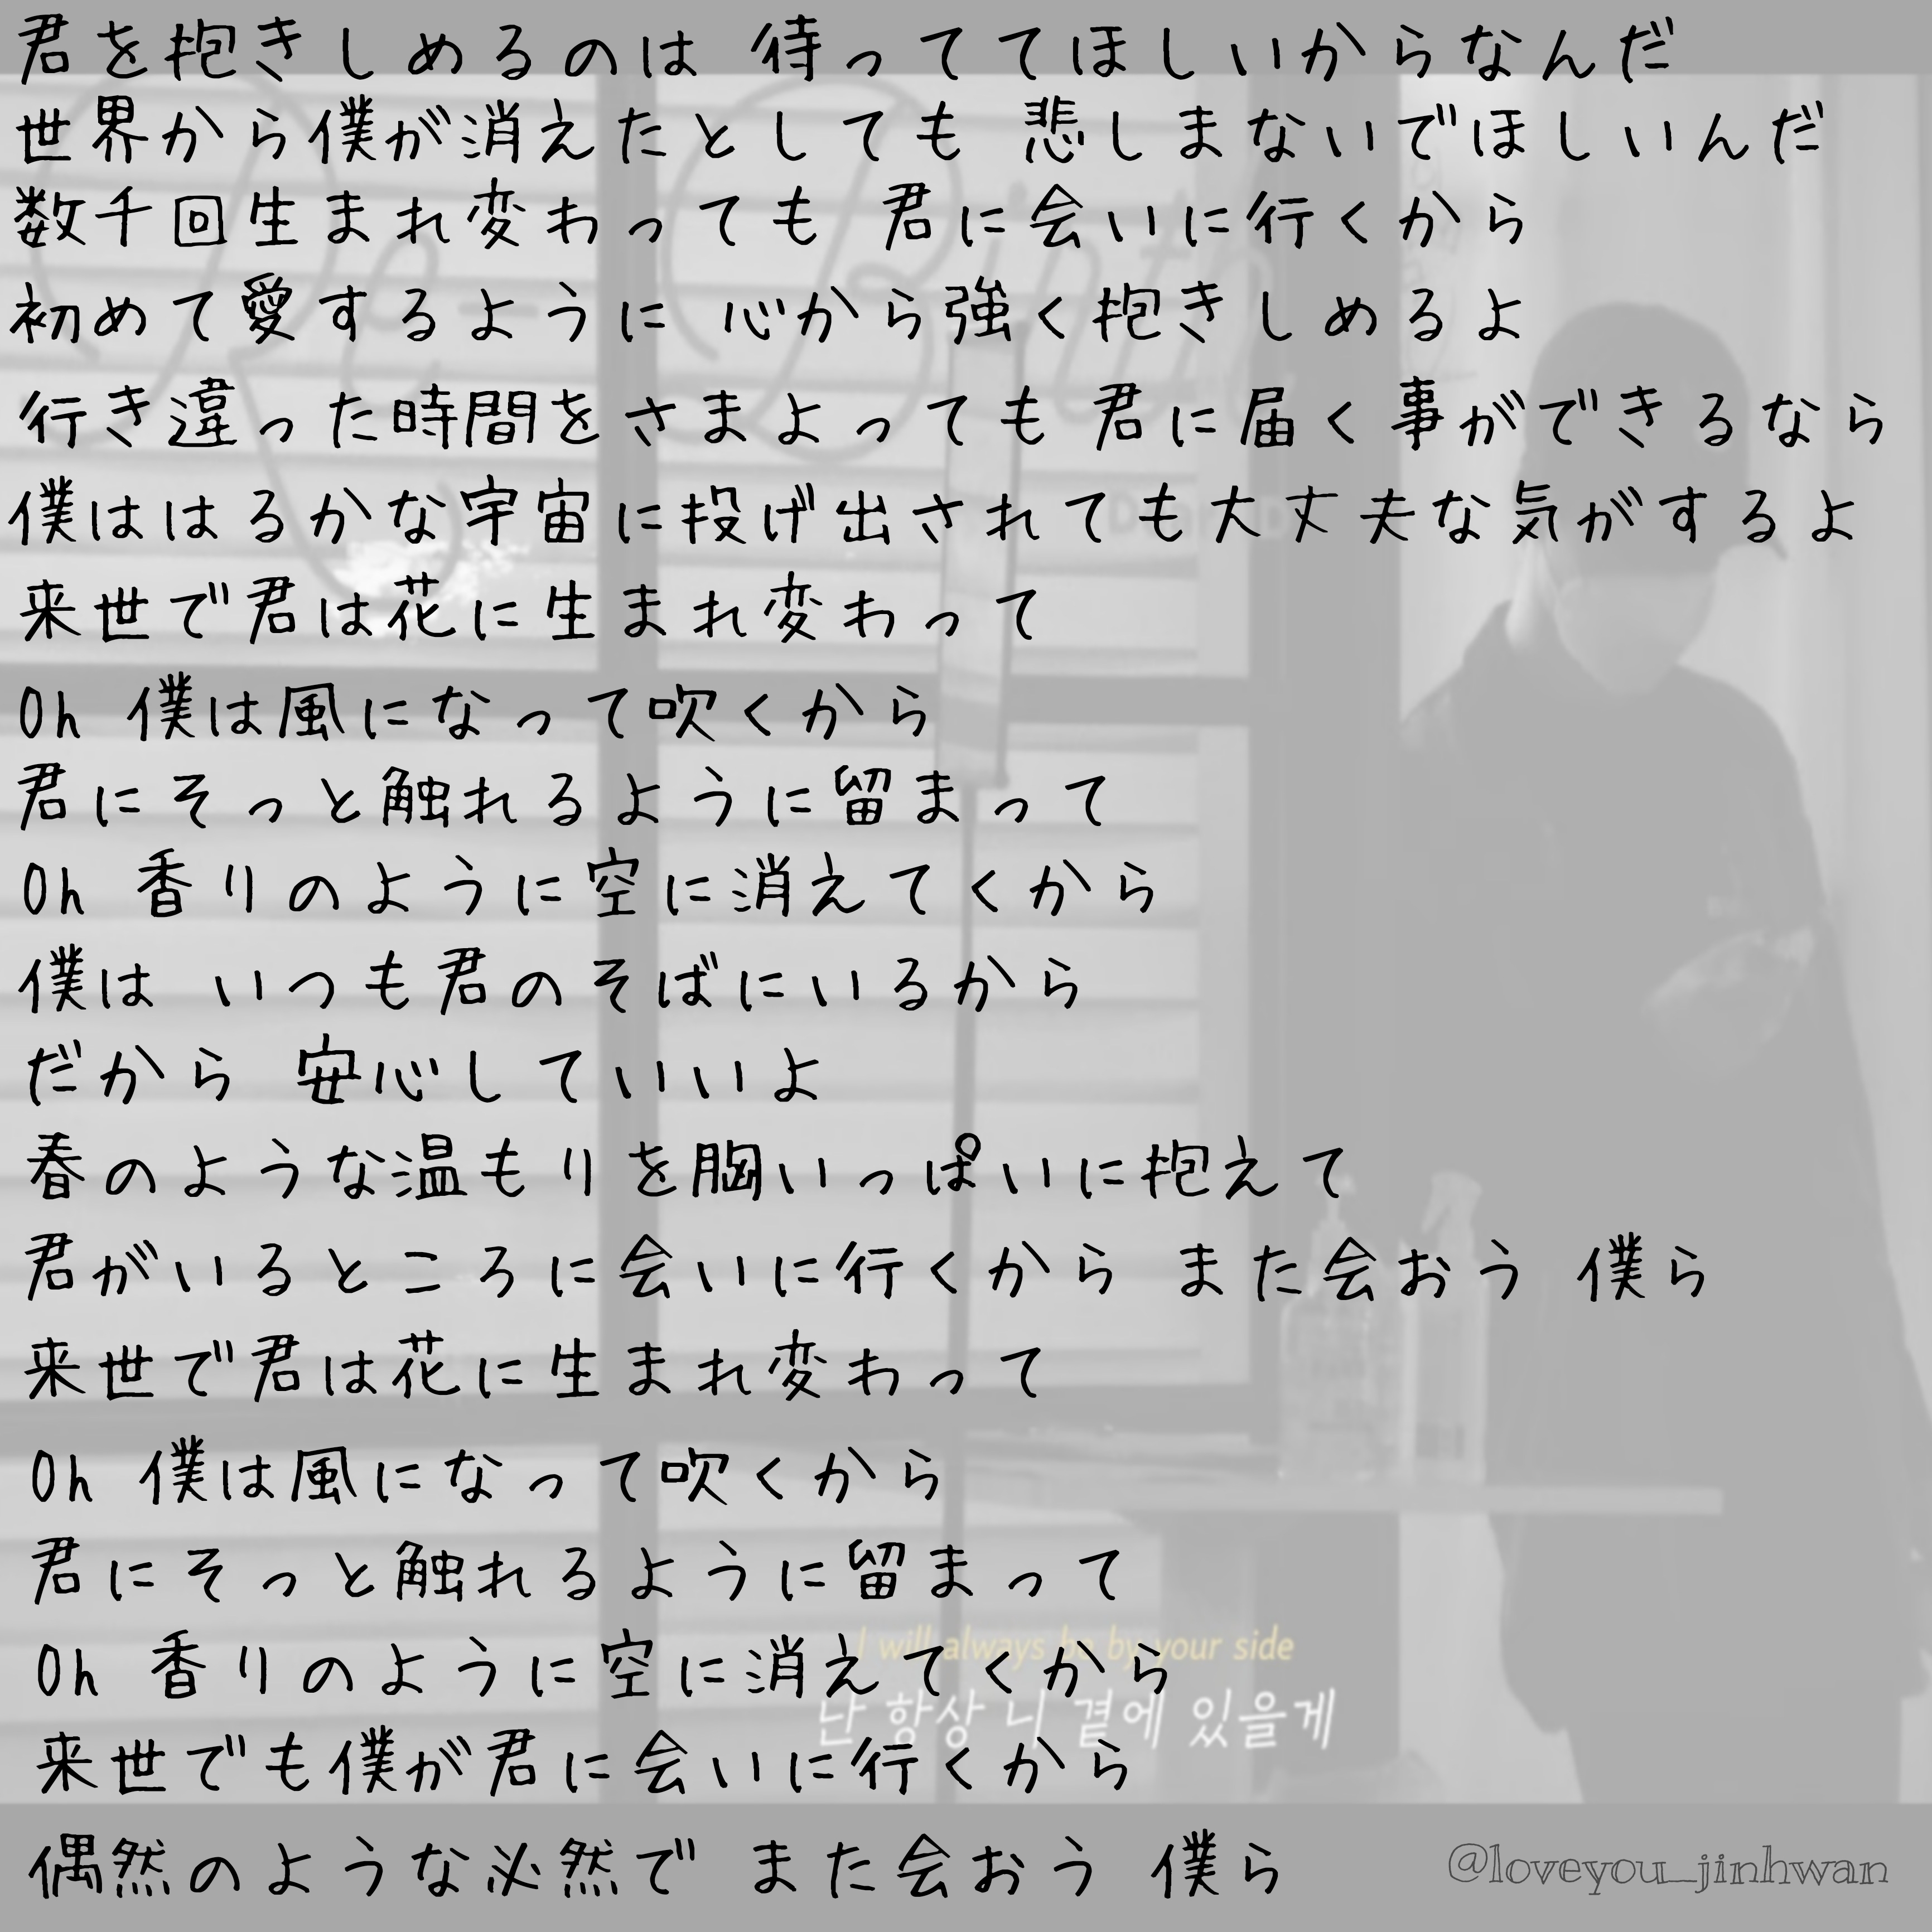 君を抱きしめるのは 待っててほしいからなんだ
世界から僕が消えたとしても 悲しまないでほしいんだ
数千回生まれ変わっても 君に会いに行くから
初めて愛するように 心から強く抱きしめるよ
行き違った時間をさまよっても 君に届く事ができるなら
僕ははるかな宇宙に投げ出されても大丈夫な気がするよ
来世で君は花に生まれ変わって
Oh 僕は風になって吹くから
君にそっと触れるように留まって
Oh 香りのように空に消えてくから
僕は いつも君のそばにいるから
だから 安心していいよ
春のような温もりを胸いっぱいに抱えて
君がいるところに会いに行くから また会おう 僕ら
来世で君は花に生まれ変わって
Oh 僕は風になって吹くから
君にそっと触れるように留まって
I will always be by your side
Oh 香りのように空に消えてくから
난 항상 니 곁에 있을게
来世でも僕が君に会いに行くから
偶然のような必然で また会おう 僕ら
@loveyou_jinhwan
Re-Birth